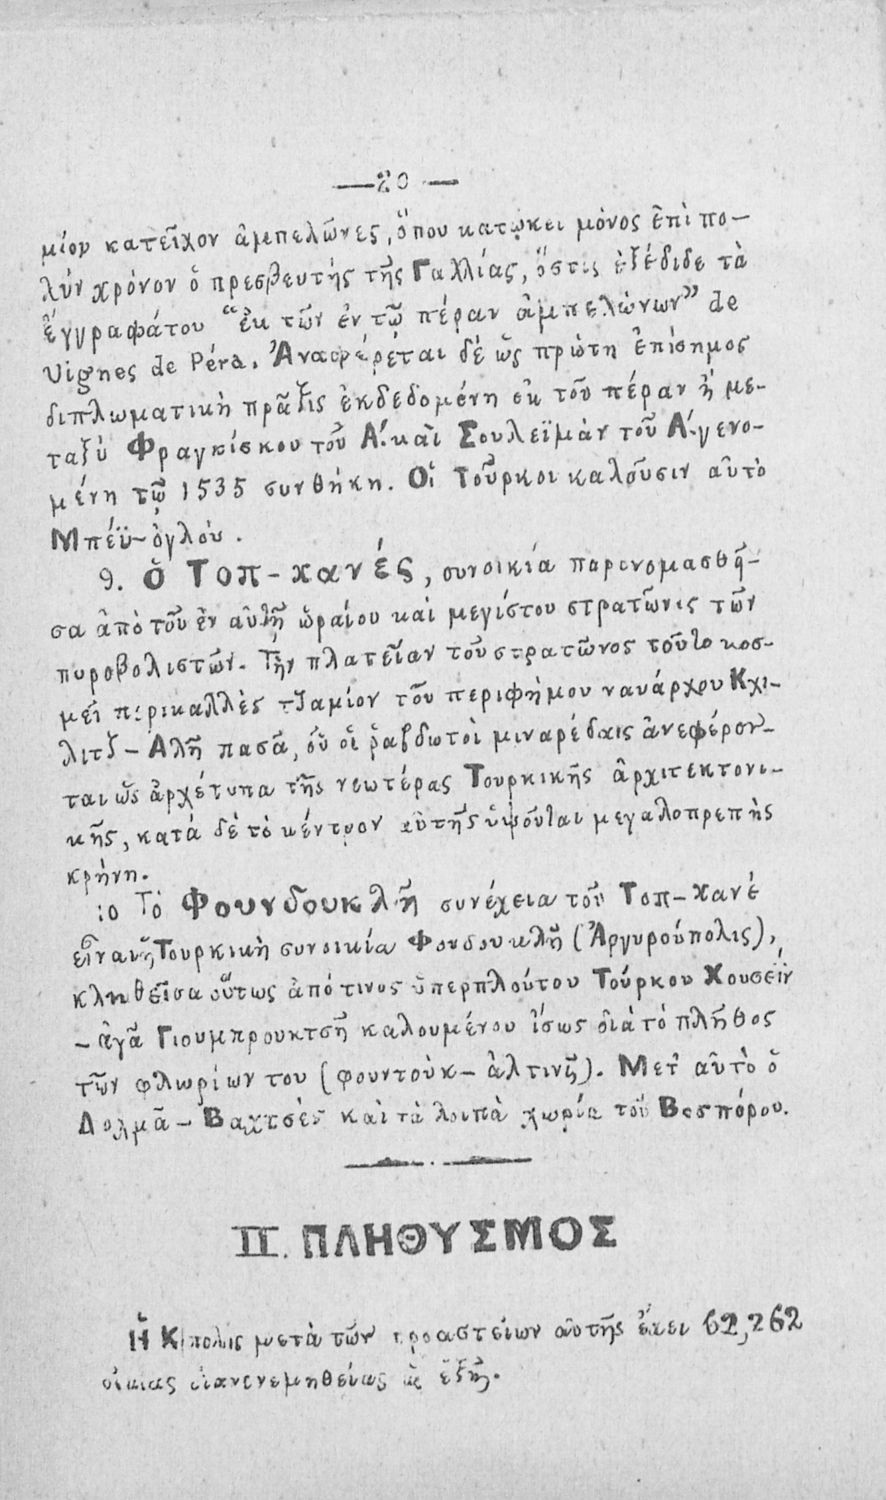 —20—
μίον κατεῖχον ἀμπελῶνες, ὅπου κατῴκει μόνος ἐπὶ πο-
λὺν χρόνον ὁ πρεσβευτὴς τῆς Γαλλίας, ὅστις ἐξέδιδε τὰ
ἔγγραφάτου “ἐκ τῶν ἐν τῷ πέραν ἀμπελώνων” de
Vignes de Péra. Ἀναφέρεται δὲ ὡς πρώτη ἐπίσημος
διπλωματικὴ πρᾶξις ἐκδεδομένη ἐκ τοῦ πέραν ἡ με-
ταξὺ Φραγκίσκου τοῦ Α΄. καὶ Σουλεϊμὰν τοῦ Α΄. γενο-
μένη τῷ 1535 συνθήκη. Οἱ Τοῦρκοι καλοῦσιν αὐτὸ
Μπέϋ-ὀγλοὺ.
9. Ὁ Τοπ-χανές, συνοικία παρονομασθῆ-
σα ἀπὸ τοῦ ἐν αὐτῇ ὡραίου καὶ μεγίστου στρατῶνος τῶν
πυροβολιστῶν. Τὴν πλατεῖαν τοῦ στρατῶνος τούτο κοσ-
μεῖ περικαλλὲς τζαμίον τοῦ περιφήμου ναυάρχου Κχι-
λιτζ-Ἀλῆ πασᾶ, οὗ οἱ ῥαβδωτοὶ μιναρέδαις ἀνεφέρον-
ται ὡς ἀρχέτυπα τῆς νεωτέρας Τουρκικῆς ἀρχιτεκτονι-
κῆς, κατὰ δὲ τὸ κέντρον αὐτῆς ὑψοῦται μεγαλοπρεπὴς
κρήνη.
10 Τὸ Φουνδουκλῆ συνέχεια τοῦ Τοπ-χανὲ
εἶναι ἡ Τουρκικὴ συνοικία Φουδουκλῆ (Ἀργυρούπολις),
κληθεῖσα οὕτως ἀπό τινος ὑπερπλούτου Τούρκου Χουσεῒν
-ἀγᾶ Γιουμπρουκτσῆ καλουμένου ἴσως διὰ τὸ πλῆθος
τῶν φλωρίων του (φουντοὺκ-ἀλτινῆ). Μετ᾽ αὐτὸ ὁ
Δολμᾶ-Βαχτσὲς καὶ τὰ λοιπὰ χωρία τοῦ Βοσπόρου.
II. ΠΛΗΘΥΣΜΟΣ
Ἡ Κ|πολις μετὰ τῶν προαστείων αὐτῆς ἔχει 62,262
οἰκίας διανενεμηθείσας ὡς ἑξῆς.